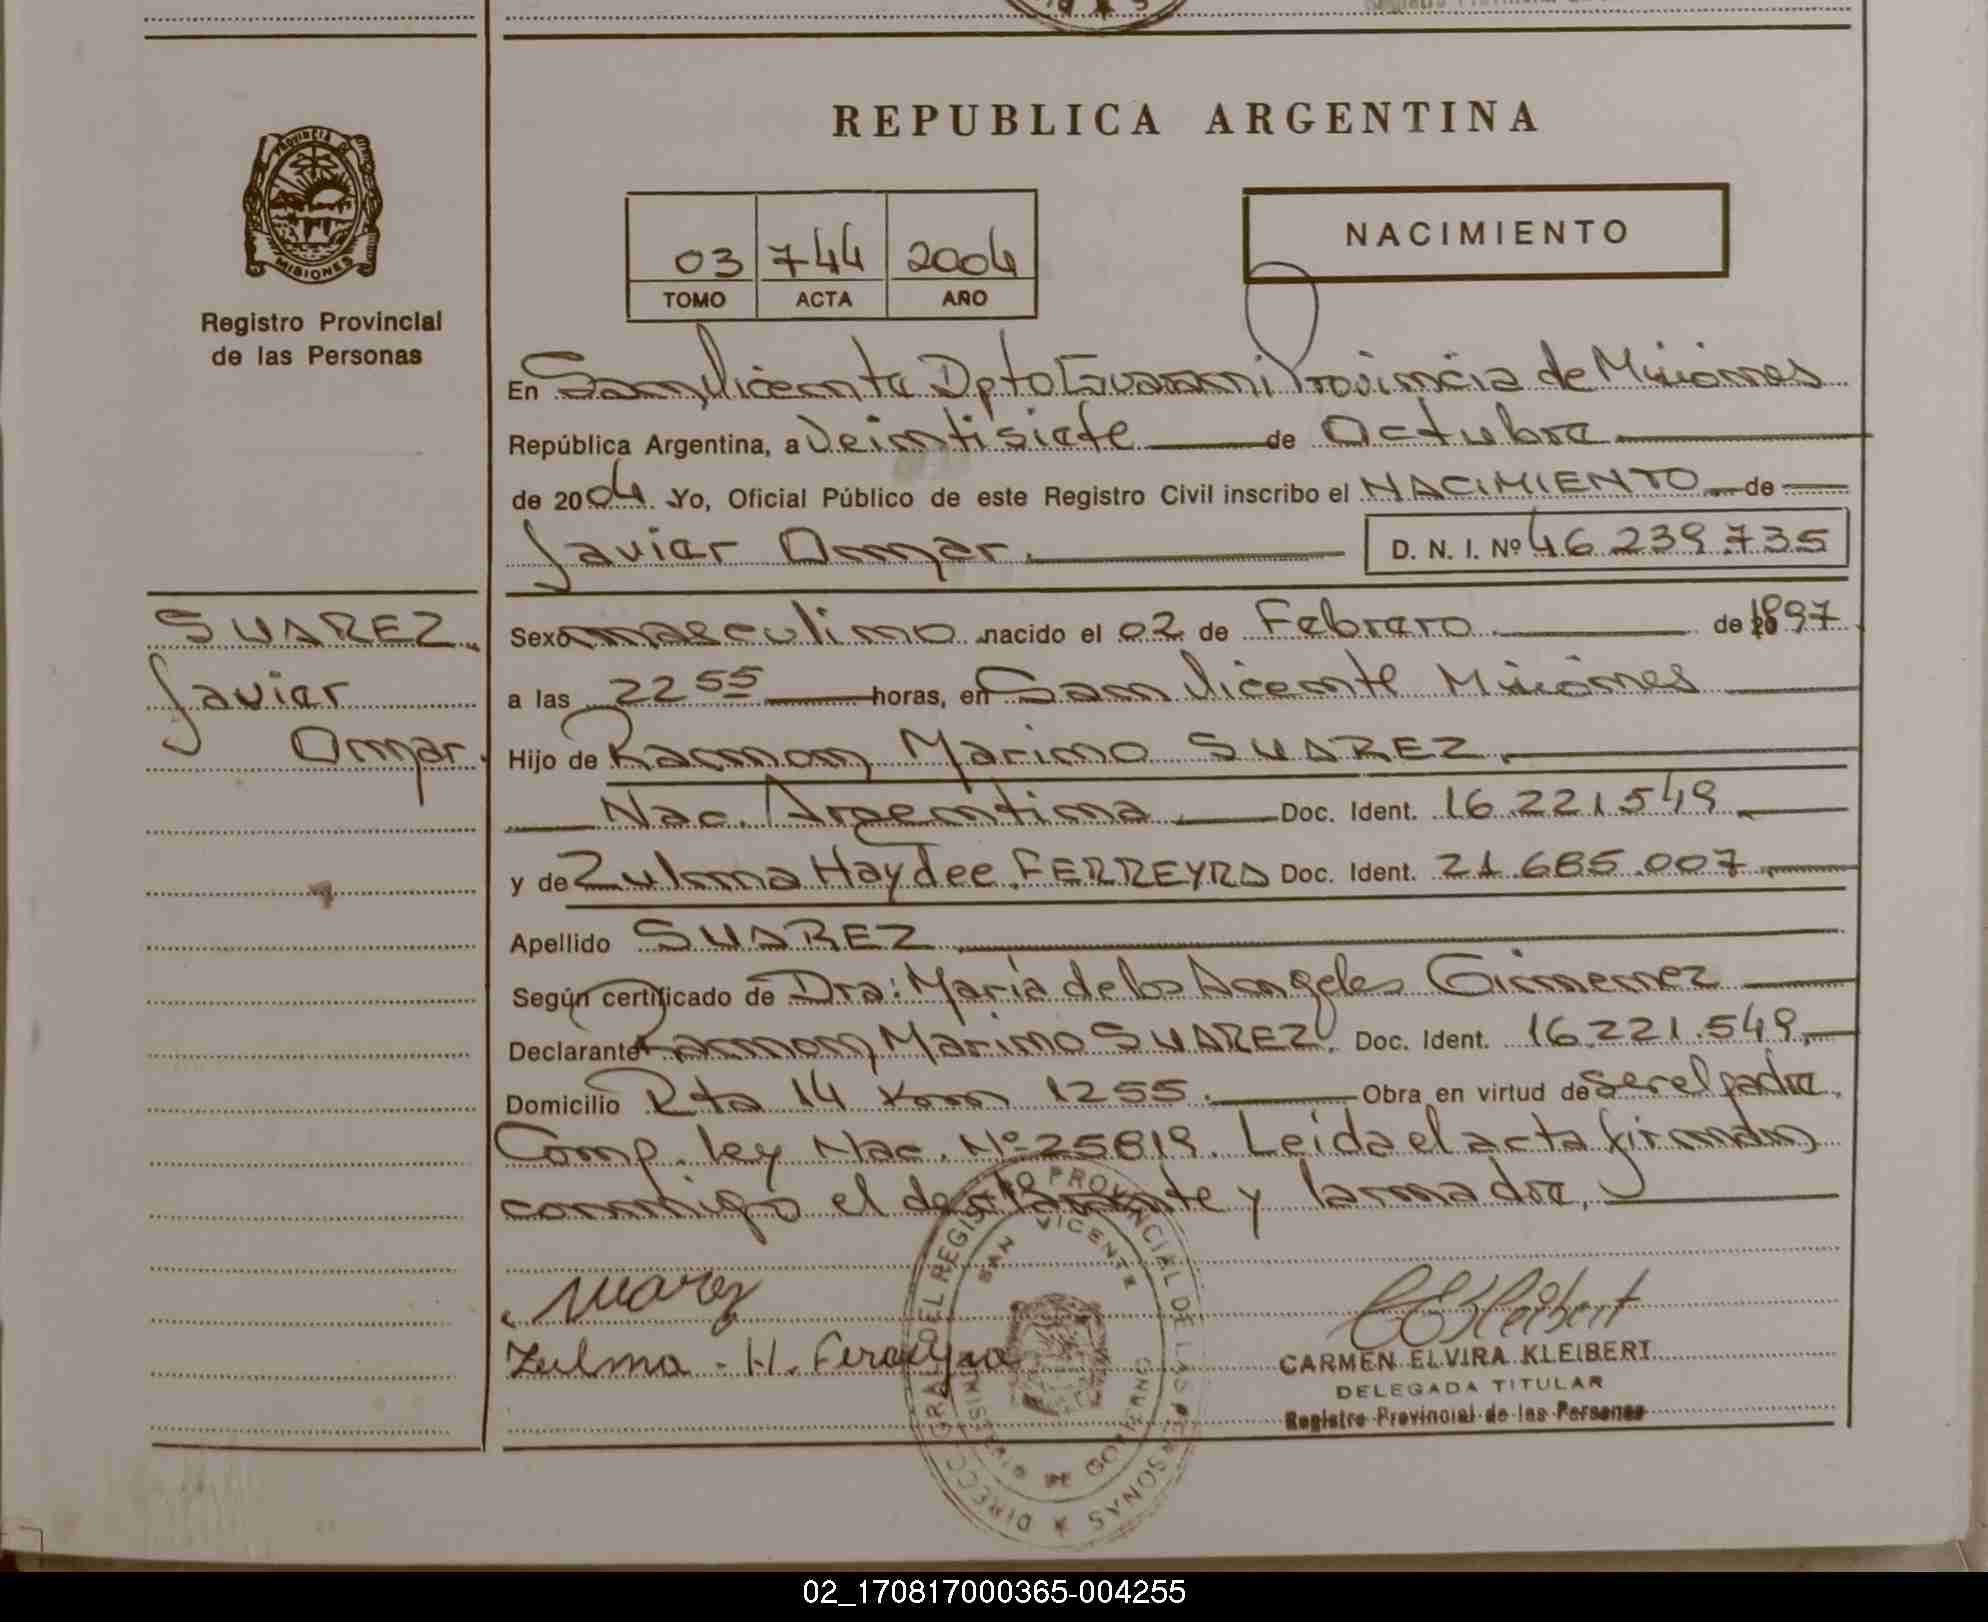 REPUBLICA ARGENTINA
PROVINCIA DE MISIONES
Registro Provincial
de las Personas
03 744 2004
TOMO ACTA AÑO
NACIMIENTO
En San Vicente Dpto Guarani Provincia de Misiones
República Argentina, a Veintisiete de Octubre
de 2004. Yo, Oficial Público de este Registro Civil inscribo el NACIMIENTO de
Javier Omar. D. N. I. Nº 46.239.735
SUAREZ
Javier
Omar.
Sexo masculino nacido el 02 de Febrero de 97
a las 22 55 horas, en San Vicente Misiones
Hijo de Ramon Marino SUAREZ.
Nac. Argentina Doc. Ident. 16.221.549
y de Zulma Haydee FERREYRA Doc. Ident. 21.685.007
Apellido SUAREZ
Según certificado de Dra: María de los Angeles Gimenez
Declarante Ramon Marino SUAREZ. Doc. Ident. 16.221.549.
Domicilio Rta 14 Km 1255. Obra en virtud de ser el padre.
Comp. ley Nac. Nº 25819. Leida el acta firman
conmigo el declarante y la madre.
Zulma - H. Ferreyra
CARMEN ELVIRA KLEIBERT
DELEGADA TITULAR
Registro Provincial de las Personas
DIRECC. GRAL. DEL REGISTRO PROVINCIAL DE LAS PERSONAS
SAN VICENTE
MINISTERIO DE GOBIERNO
02_170817000365-004255